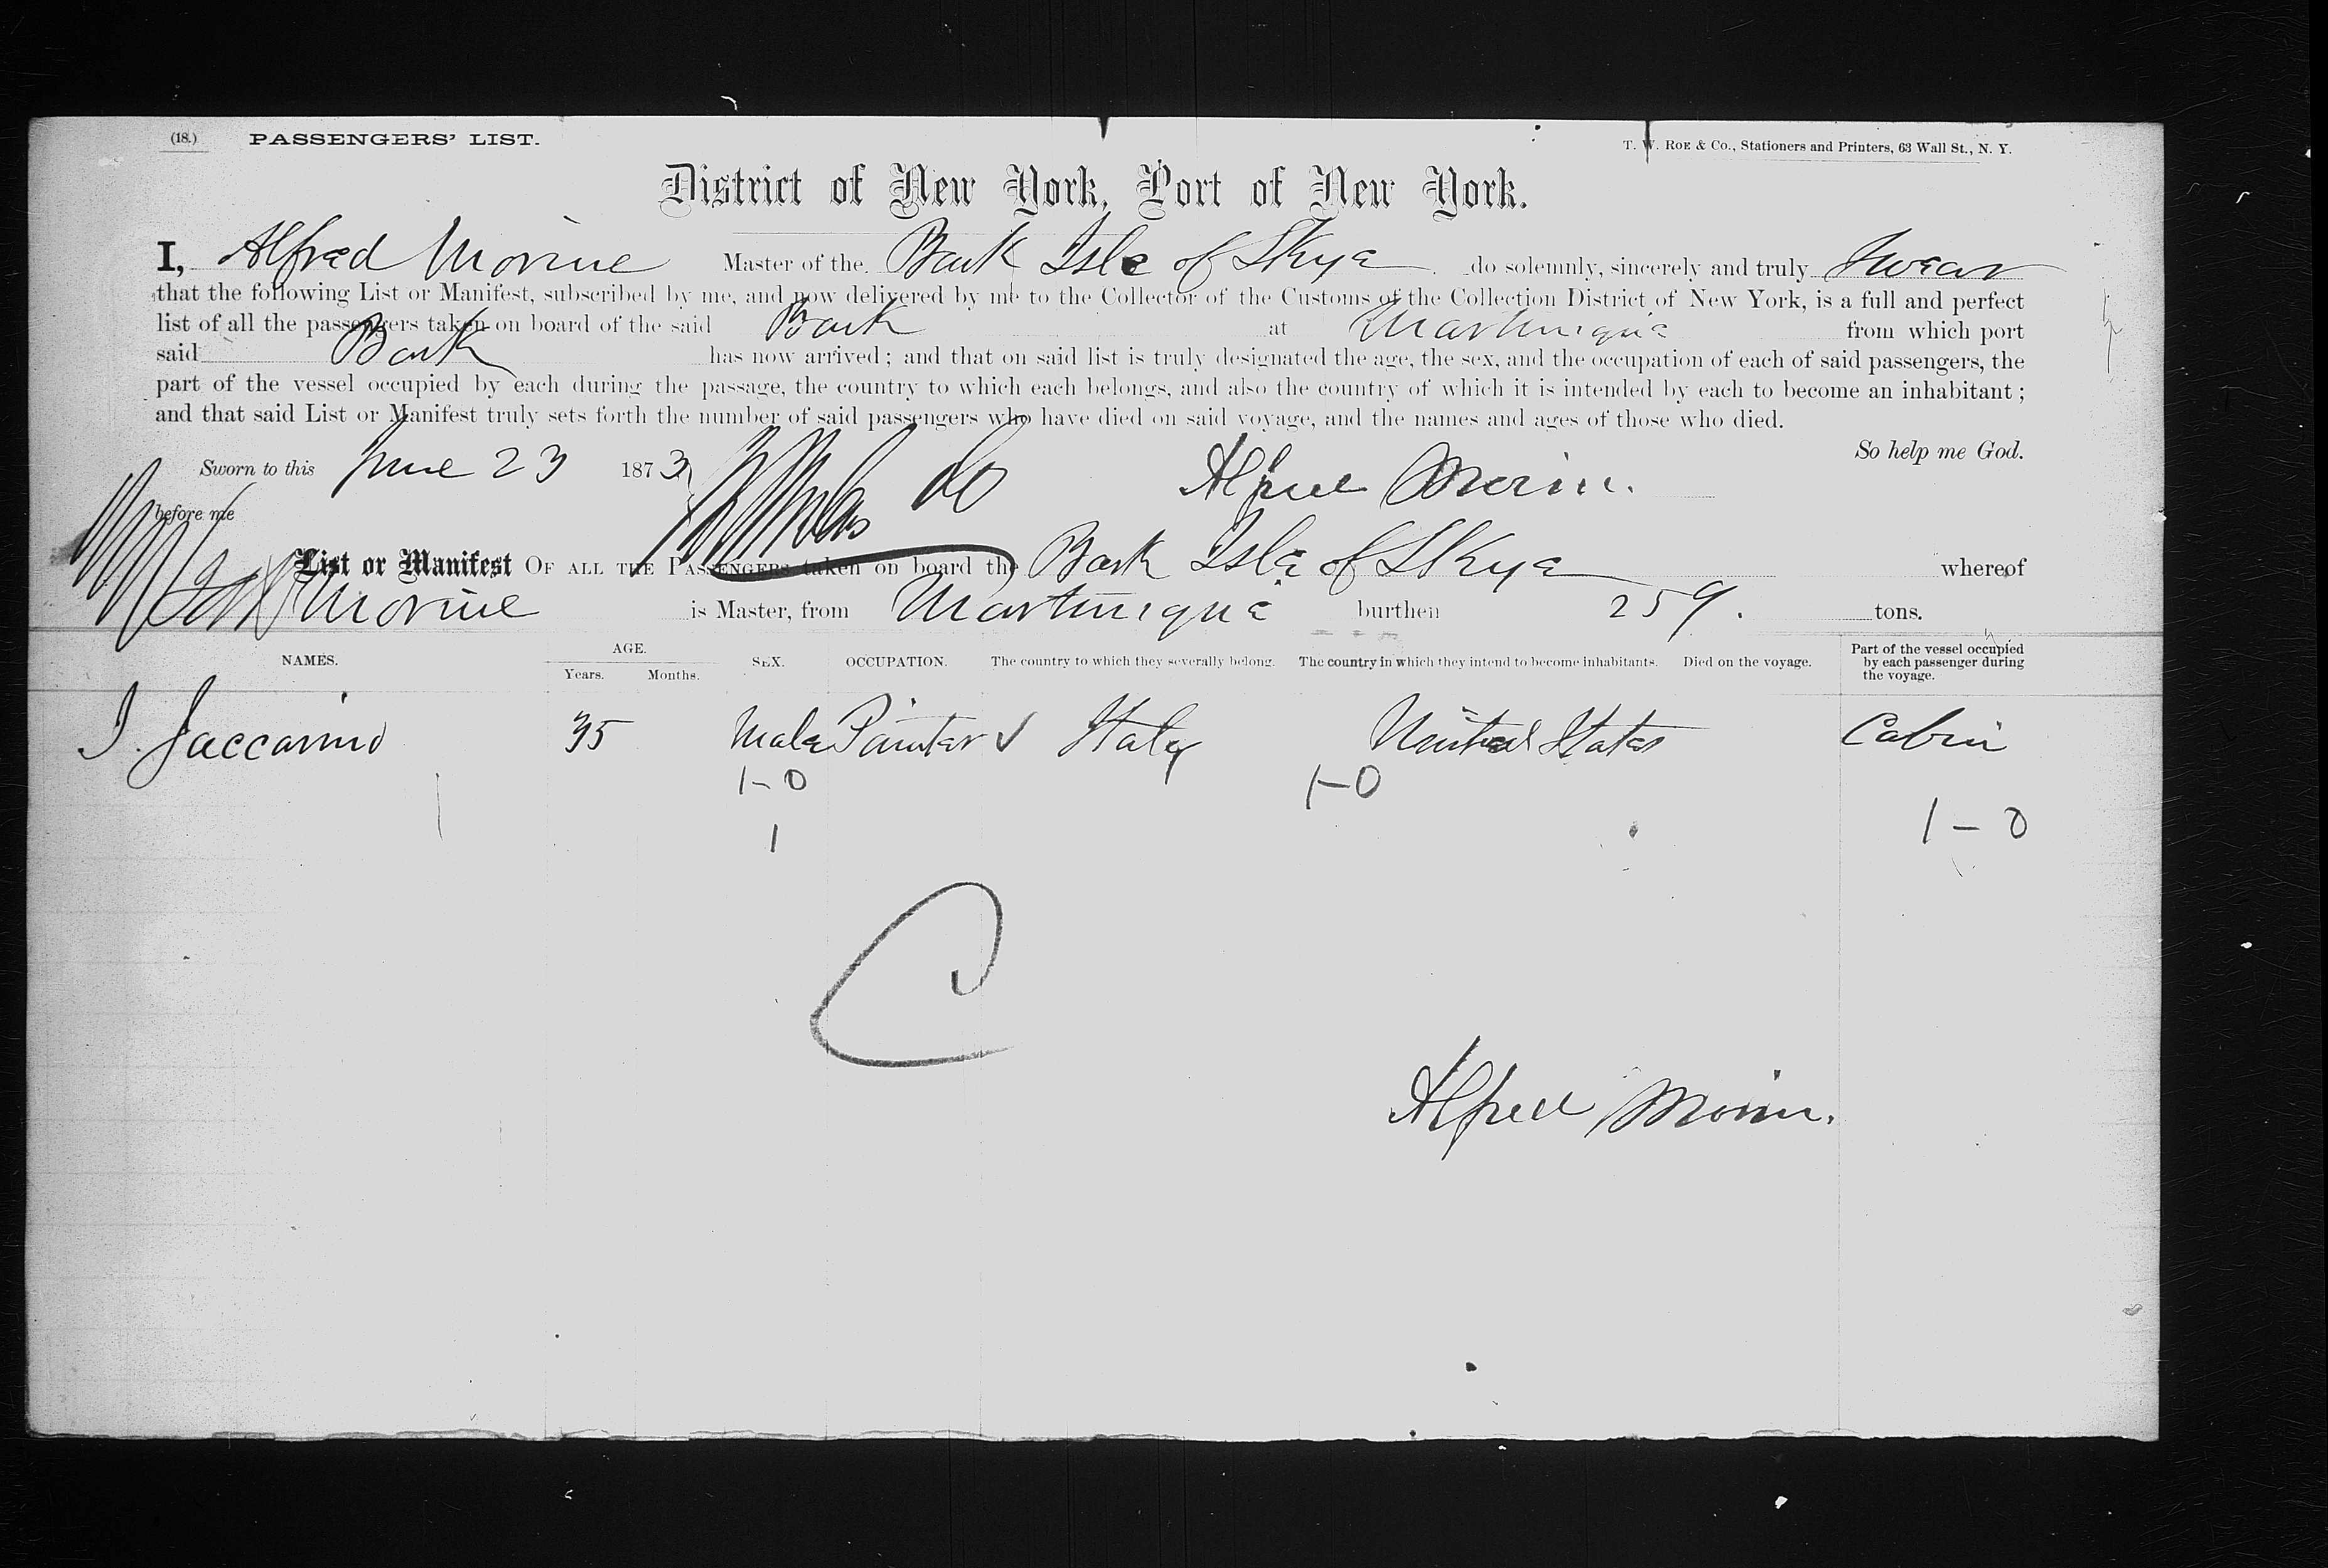 (18.) PASSENGERS' LIST. T. W. ROE & Co., Stationers and Printers, 63 Wall St., N. Y.
District of New York, Port of New York.
I, Alfred Morine Master of the Bark Isle of Skye do solemnly, sincerely and truly Swear
that the following List or Manifest, subscribed by me, and now delivered by me to the Collector of the Customs of the Collection District of New York, is a full and perfect
list of all the passengers taken on board of the said Bark at Martinique from which port
said Bark has now arrived; and that on said list is truly designated the age, the sex, and the occupation of each of said passengers, the
part of the vessel occupied by each during the passage, the country to which each belongs, and also the country of which it is intended by each to become an inhabitant;
and that said List or Manifest truly sets forth the number of said passengers who have died on said voyage, and the names and ages of those who died.
So help me God.
Sworn to this June 23 1873 Alfred Morine.
before me
List or Manifest OF ALL THE PASSENGERS taken on board the Bark Isle of Skye whereof
Morine is Master, from Martinique burthen 259. tons.
NAMES. AGE. Years. Months. SEX. OCCUPATION. The country to which they severally belong. The country in which they intend to become inhabitants. Died on the voyage. Part of the vessel occupied by each passenger during the voyage.
J. Jaccarino 35 Male Painter ✓ Italy United States Cabin
1-0 1-0
1 1-0
C
Alfred Morine.